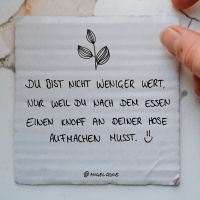 DU BIST NICHT WENIGER WERT,
NUR WEIL DU NACH DEM ESSEN
EINEN KNOPF AN DEINER HOSE
AUFMACHEN MUSST.